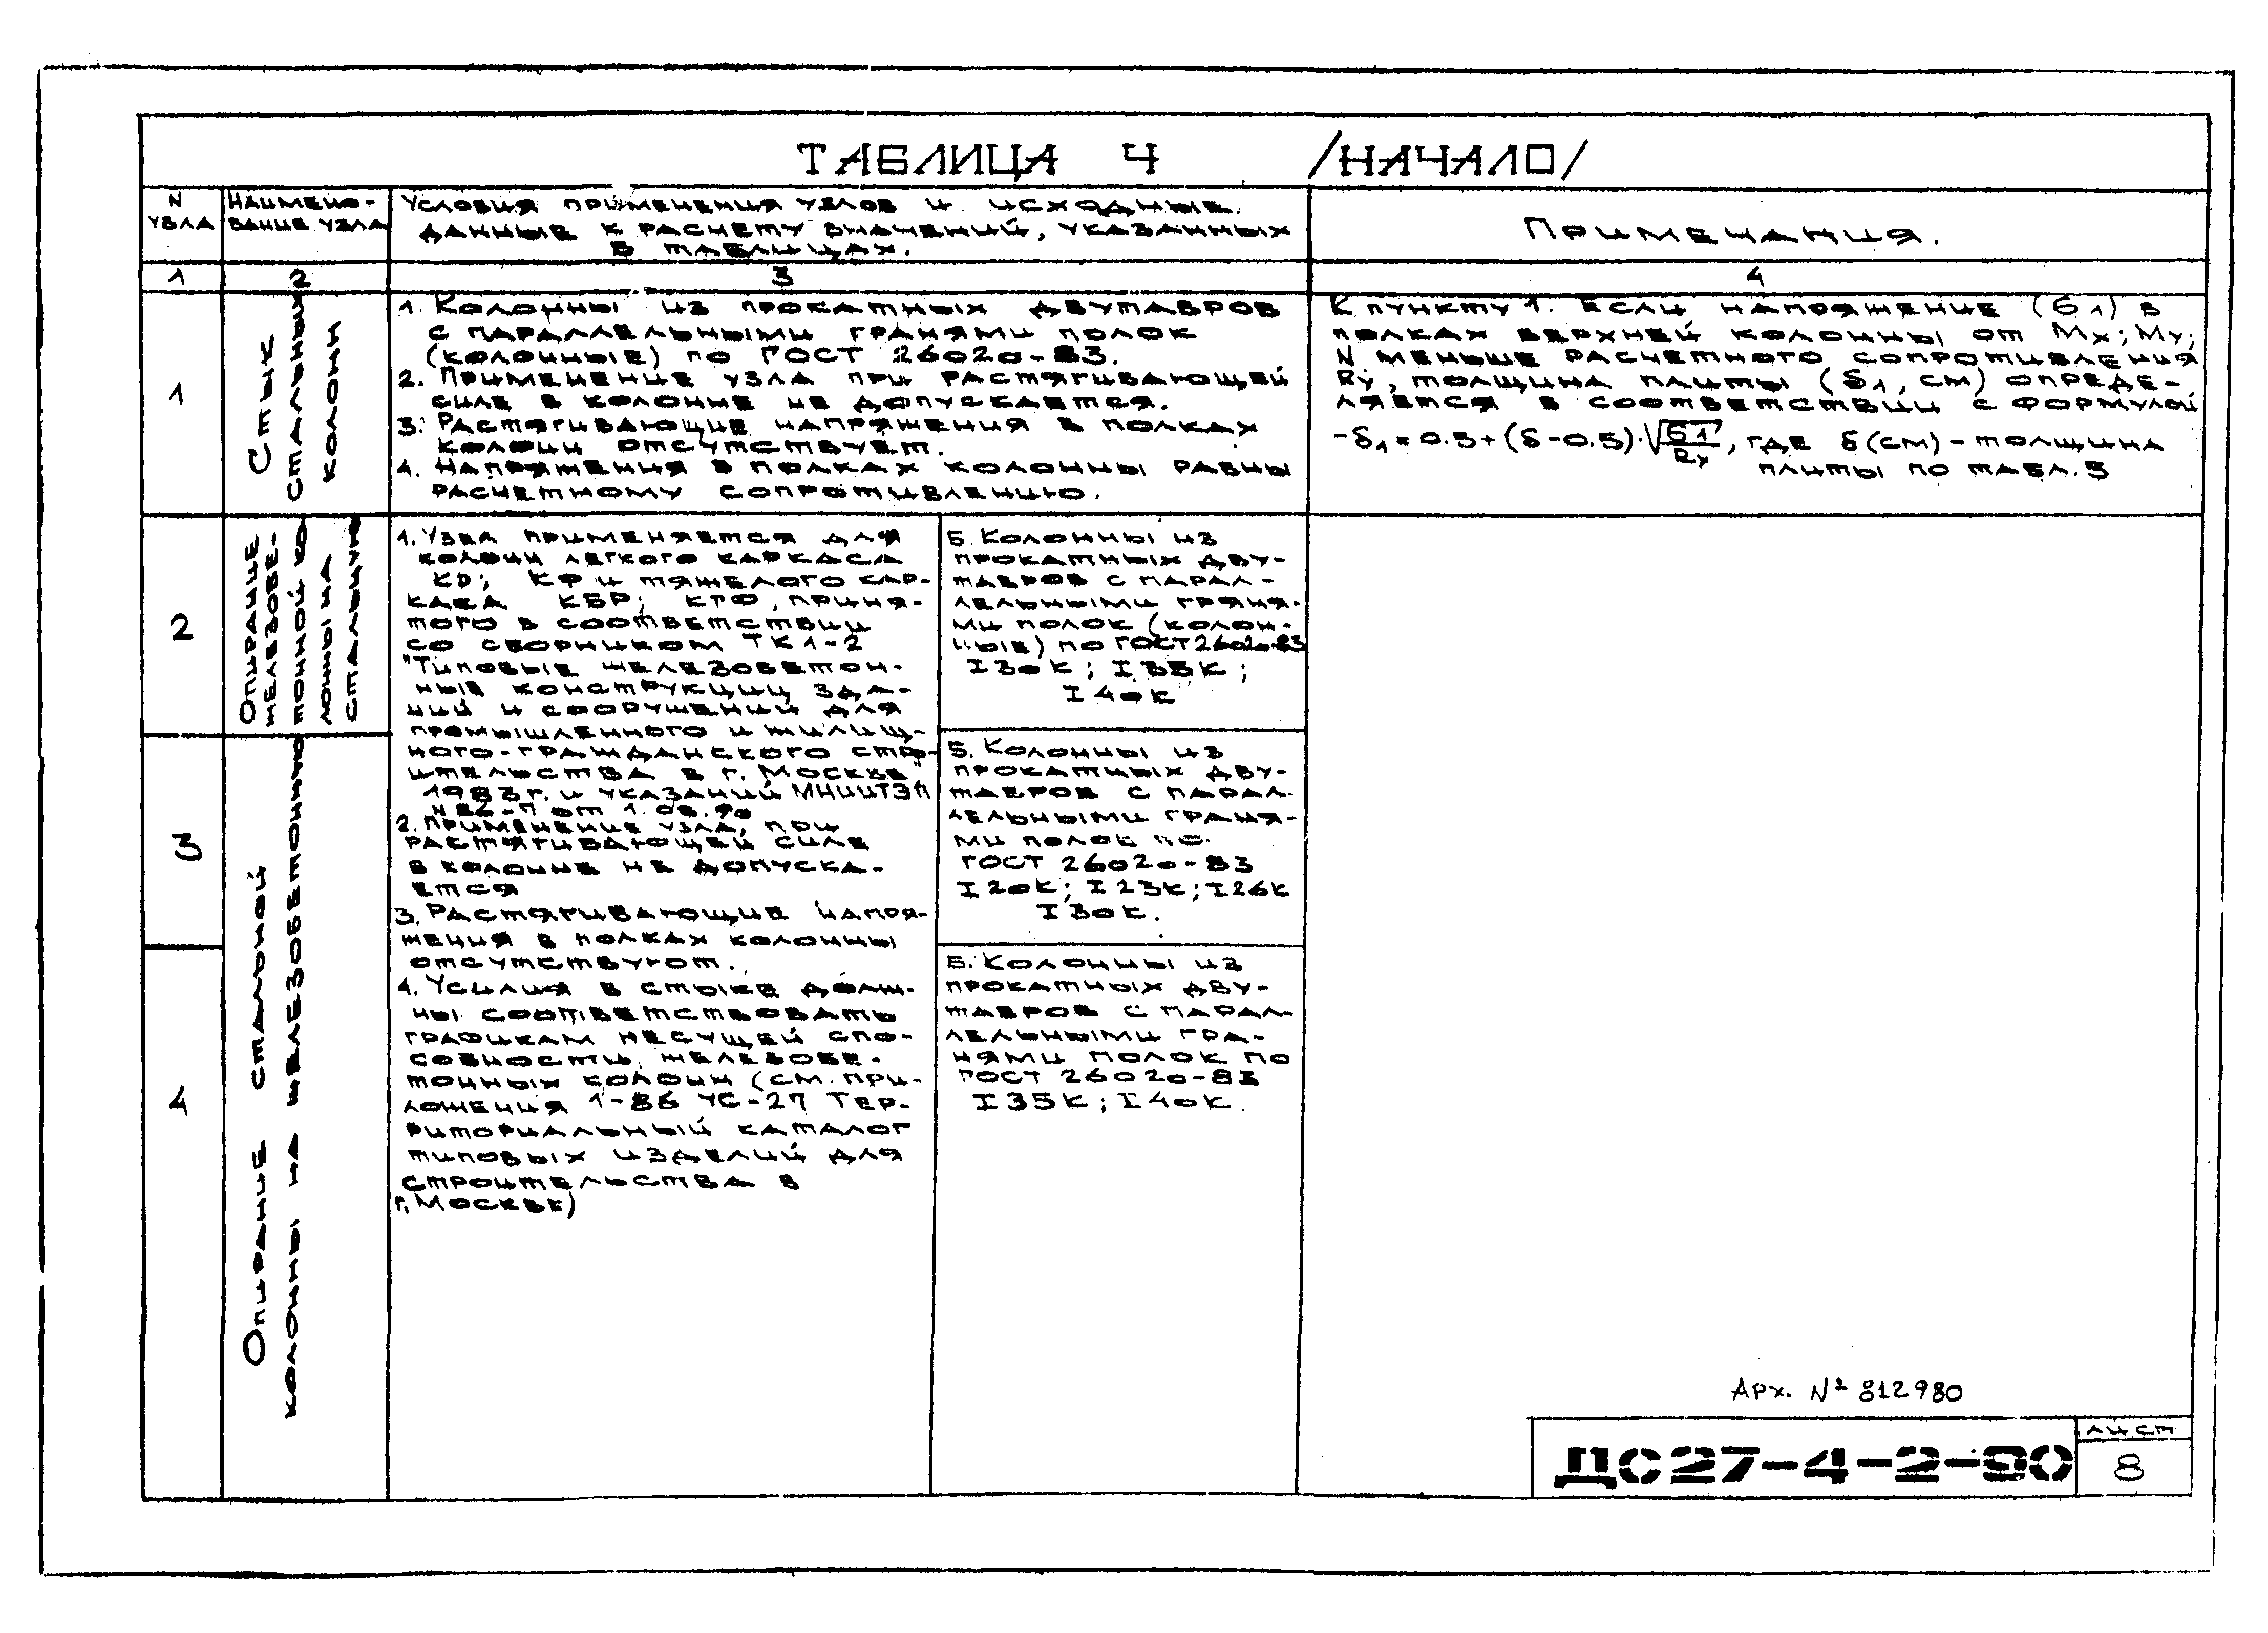 ТАБЛИЦА 4 /НАЧАЛО/
N
УЗЛА
НАИМЕНО-
ВАНИЕ УЗЛА
УСЛОВИЯ ПРИМЕНЕНИЯ УЗЛОВ И ИСХОДНЫЕ
ДАННЫЕ К РАСЧЕТУ ЗНАЧЕНИЙ, УКАЗАННЫХ
В ТАБЛИЦАХ.
ПРИМЕЧАНИЯ.
1
2
3
4
1
СТЫК
СТАЛЬНЫХ
КОЛОНН
1. КОЛОННЫ ИЗ ПРОКАТНЫХ ДВУТАВРОВ
С ПАРАЛЛЕЛЬНЫМИ ГРАНЯМИ ПОЛОК
(КОЛОННЫЕ) ПО ГОСТ 26020-83.
2. ПРИМЕНЕНИЕ УЗЛА ПРИ РАСТЯГИВАЮЩЕЙ
СИЛЕ В КОЛОННЕ НЕ ДОПУСКАЕТСЯ.
3. РАСТЯГИВАЮЩИЕ НАПРЯЖЕНИЯ В ПОЛКАХ
КОЛОНН ОТСУТСТВУЕТ.
4. НАПРЯЖЕНИЯ В ПОЛКАХ КОЛОННЫ РАВНЫ
РАСЧЕТНОМУ СОПРОТИВЛЕНИЮ.
К ПУНКТУ 1. ЕСЛИ НАПРЯЖЕНИЕ (б1) В
ПОЛКАХ ВЕРХНЕЙ КОЛОННЫ ОТ Mx; My;
N МЕНЬШЕ РАСЧЕТНОГО СОПРОТИВЛЕНИЯ
Ry, ТОЛЩИНА ПЛИТЫ (δ1, СМ) ОПРЕДЕ-
ЛЯЕТСЯ В СООТВЕТСТВИИ С ФОРМУЛОЙ
-δ1=0.5+(δ-0.5)·√б1/Ry, ГДЕ δ(СМ)-ТОЛЩИНА
ПЛИТЫ ПО ТАБЛ.5
2
ОПИРАНИЕ
ЖЕЛЕЗОБЕ-
ТОННОЙ КО
ЛОННЫ НА
СТАЛЬНУЮ
3
4
ОПИРАНИЕ СТАЛЬНОЙ
КОЛОННЫ НА ЖЕЛЕЗОБЕТОННУЮ
1. УЗЕЛ ПРИМЕНЯЕТСЯ ДЛЯ
КОЛОНН ЛЕГКОГО КАРКАСА
КР; КФ И ТЯЖЕЛОГО КАР-
КАСА КБР; КТФ, ПРИНЯ-
ТОГО В СООТВЕТСТВИИ
СО СБОРНИКОМ ТК1-2
"ТИПОВЫЕ ЖЕЛЕЗОБЕТОН-
НЫЕ КОНСТРУКЦИИ ЗДА-
НИЙ И СООРУЖЕНИЙ ДЛЯ
ПРОМЫШЛЕННОГО И ЖИЛИЩ-
НОГО-ГРАЖДАНСКОГО СТРО-
ИТЕЛЬСТВА В Г. МОСКВЕ"
1983Г. И УКАЗАНИЙ МНИИТЭП
ОТ 1.
2. ПРИМЕНЕНИЕ УЗЛА, ПРИ
РАСТЯГИВАЮЩЕЙ СИЛЕ
В КОЛОННЕ НЕ ДОПУСКА-
ЕТСЯ
3. РАСТЯГИВАЮЩИЕ НАПРЯ-
ЖЕНИЯ В ПОЛКАХ КОЛОННЫ
ОТСУТСТВУЮТ.
4. УСИЛИЯ В СТЫКЕ ДОЛЖ-
НЫ СООТВЕТСТВОВАТЬ
ГРАФИКАМ НЕСУЩЕЙ СПО-
СОБНОСТИ ЖЕЛЕЗОБЕ-
ТОННЫХ КОЛОНН (СМ. ПРИ-
ЛОЖЕНИЯ 1-86 УС-27 ТЕР-
РИТОРИАЛЬНЫЙ КАТАЛОГ
ТИПОВЫХ ИЗДЕЛИЙ ДЛЯ
СТРОИТЕЛЬСТВА В
Г. МОСКВЕ)
5. КОЛОННЫ ИЗ
ПРОКАТНЫХ ДВУ-
ТАВРОВ С ПАРАЛ-
ЛЕЛЬНЫМИ ГРАНЯ-
МИ ПОЛОК (КОЛОН-
НЫЕ) ПО ГОСТ 26020-83
I30К; I35К;
I40К
5. КОЛОННЫ ИЗ
ПРОКАТНЫХ ДВУ-
ТАВРОВ С ПАРАЛ-
ЛЕЛЬНЫМИ ГРАНЯ-
МИ ПОЛОК ПО
ГОСТ 26020-83
I20К; I23К; I26К
I30К.
5. КОЛОННЫ ИЗ
ПРОКАТНЫХ ДВУ-
ТАВРОВ С ПАРАЛ-
ЛЕЛЬНЫМИ ГРА-
НЯМИ ПОЛОК ПО
ГОСТ 26020-83
I35К; I40К.
Арх. № 812980
ДС27-4-2-90
ЛИСТ
8